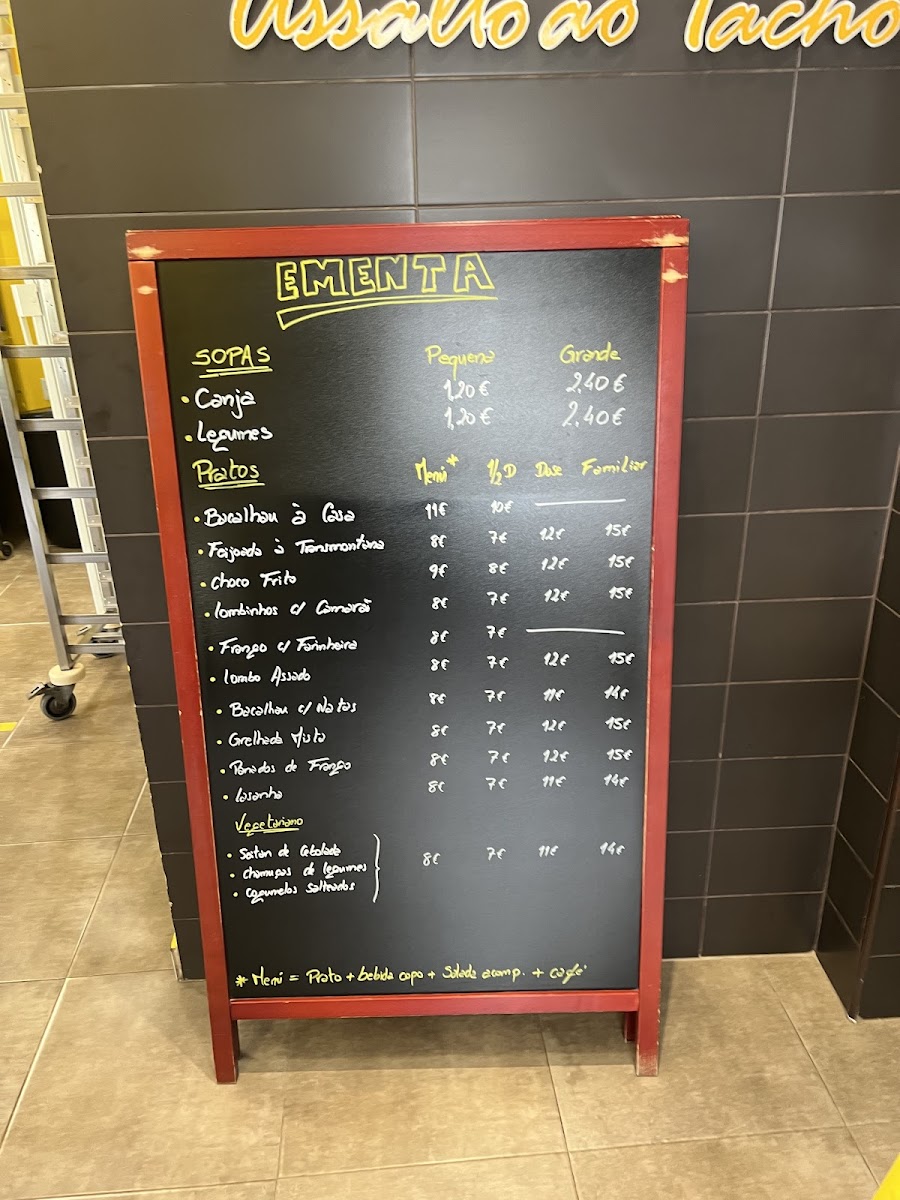 Assalto ao Tacho
EMENTA
SOPAS Pequena Grande
• Canja 1,20€ 2,40€
• Legumes 1,20€ 2,40€
Pratos Menú* 1/2 D Dose Familiar
• Bacalhau à Casa 11€ 10€ ———
• Feijoada à Transmontana 8€ 7€ 12€ 15€
• Choco Frito 9€ 8€ 12€ 15€
• Lombinhos c/ Camarão 8€ 7€ 12€ 15€
• Frango c/ Farinheira 8€ 7€ ———
• Lombo Assado 8€ 7€ 12€ 15€
• Bacalhau c/ Natas 8€ 7€ 11€ 14€
• Grelhada Mista 8€ 7€ 12€ 15€
• Panados de Frango 8€ 7€ 12€ 15€
• Lasanha 8€ 7€ 11€ 14€
Vegetariano
• Seitan de Cebolada
• Chamuças de legumes 8€ 7€ 11€ 14€
• Cogumelos salteados
* Menú = Prato + bebida copo + Salada acomp. + café